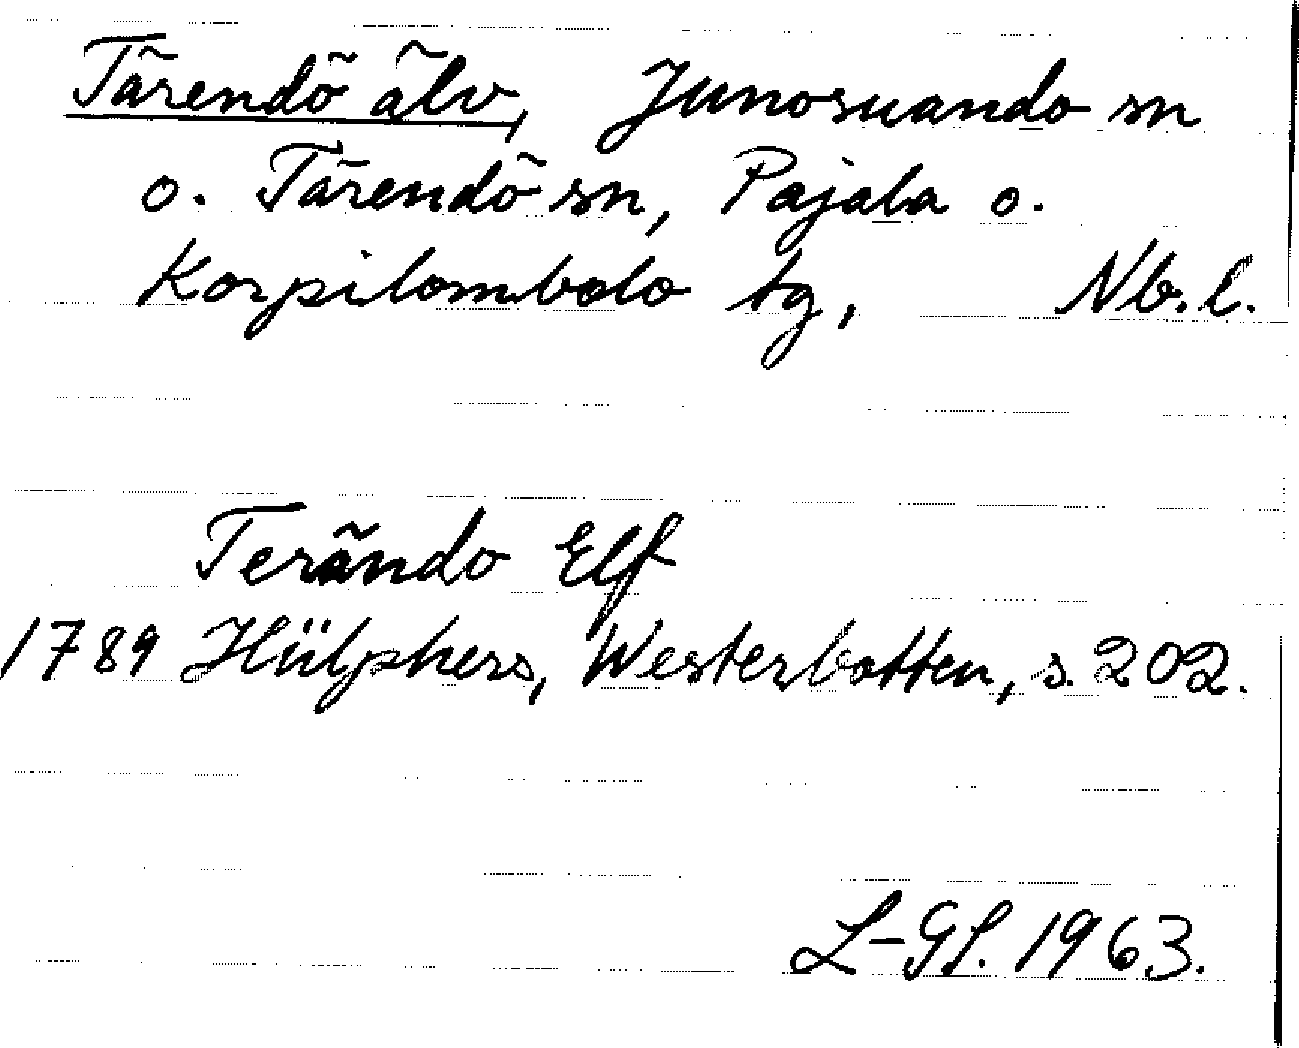 Tärendö älv, Junosuando sn
o. Tärendö sn, Pajala o.
Korpilombolo tg, Nb. l.
Terändo Elf
1789 Hülphers, Westerbotten, s. 202.
L-GL. 1963.